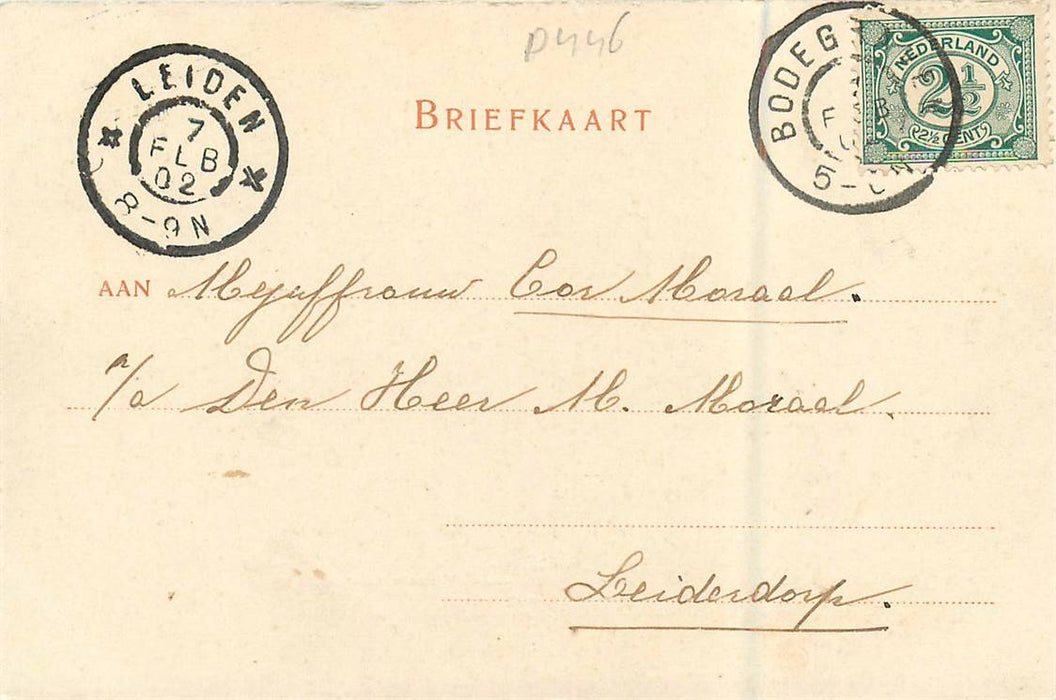 P446
LEIDEN
7
FEB
02
8-9N
BRIEFKAART
BODEG
5-
NEDERLAND
2½
2½ CENT
AAN Mejuffrouw Cor Moraal.
p/a Den Heer M. Moraal.
Leiderdorp.